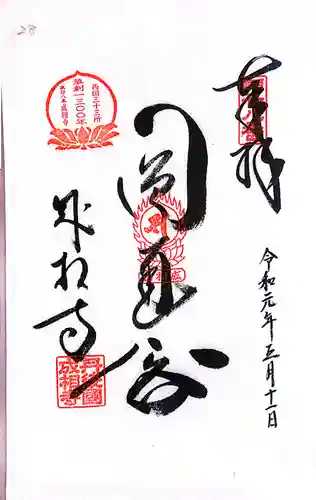 28
奉拝
西国廿八番
令和元年五月十一日
圓通
西国三十三所
草創一三〇〇年
第廿八番成相寺
成相寺
丹後國
成相寺